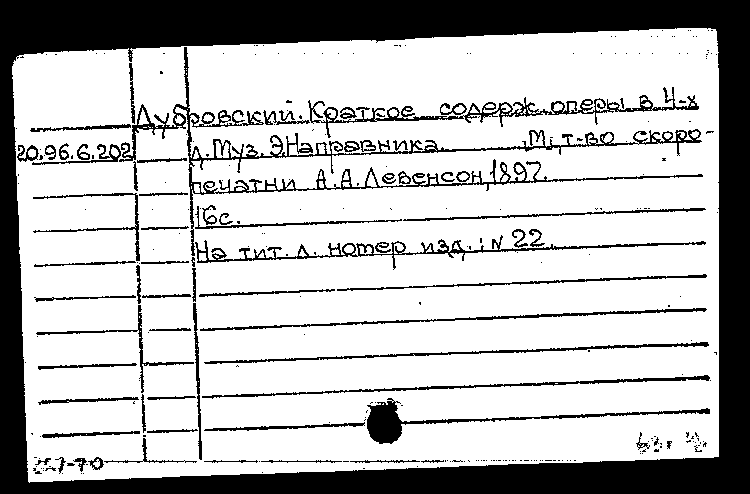 Дубровский. Краткое содерж. оперы в 4-х
20.96.6.202 д. Муз. Э. Направника. М., т-во скоро-
печатни А. А. Левенсон, 1897.
16с.
На тит. л. номер изд.: N 22.
-70
63г.